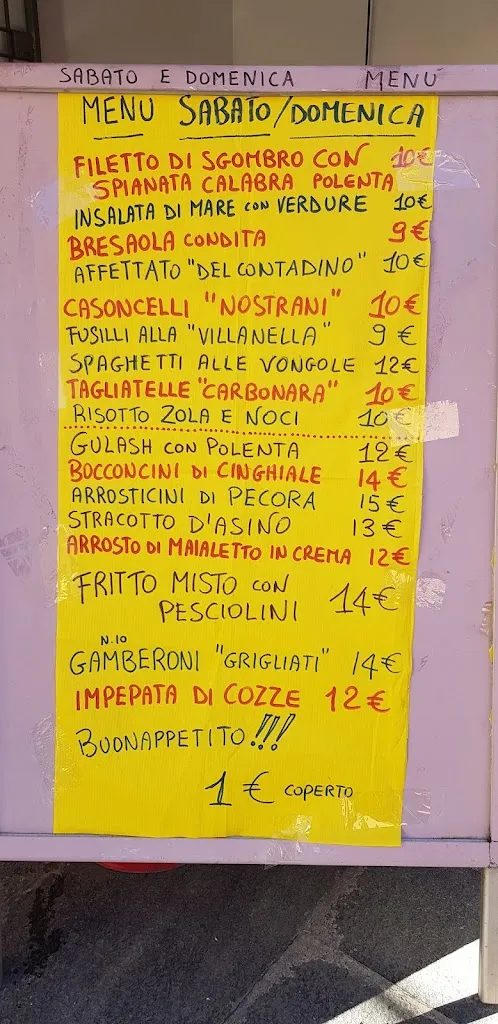 SABATO E DOMENICA MENU
MENU SABATO/DOMENICA
FILETTO DI SGOMBRO CON 10€
SPIANATA CALABRA POLENTA
INSALATA DI MARE CON VERDURE 10€
BRESAOLA CONDITA 9€
AFFETTATO "DEL CONTADINO" 10€
CASONCELLI "NOSTRANI" 10€
FUSILLI ALLA "VILLANELLA" 9€
SPAGHETTI ALLE VONGOLE 12€
TAGLIATELLE "CARBONARA" 10€
RISOTTO ZOLA E NOCI 10€
GULASH CON POLENTA 12€
BOCCONCINI DI CINGHIALE 14€
ARROSTICINI DI PECORA 15€
STRACOTTO D'ASINO 13€
ARROSTO DI MAIALETTO IN CREMA 12€
FRITTO MISTO CON
PESCIOLINI 14€
N.10
GAMBERONI "GRIGLIATI" 14€
IMPEPATA DI COZZE 12€
BUONAPPETITO!!!
1€ COPERTO